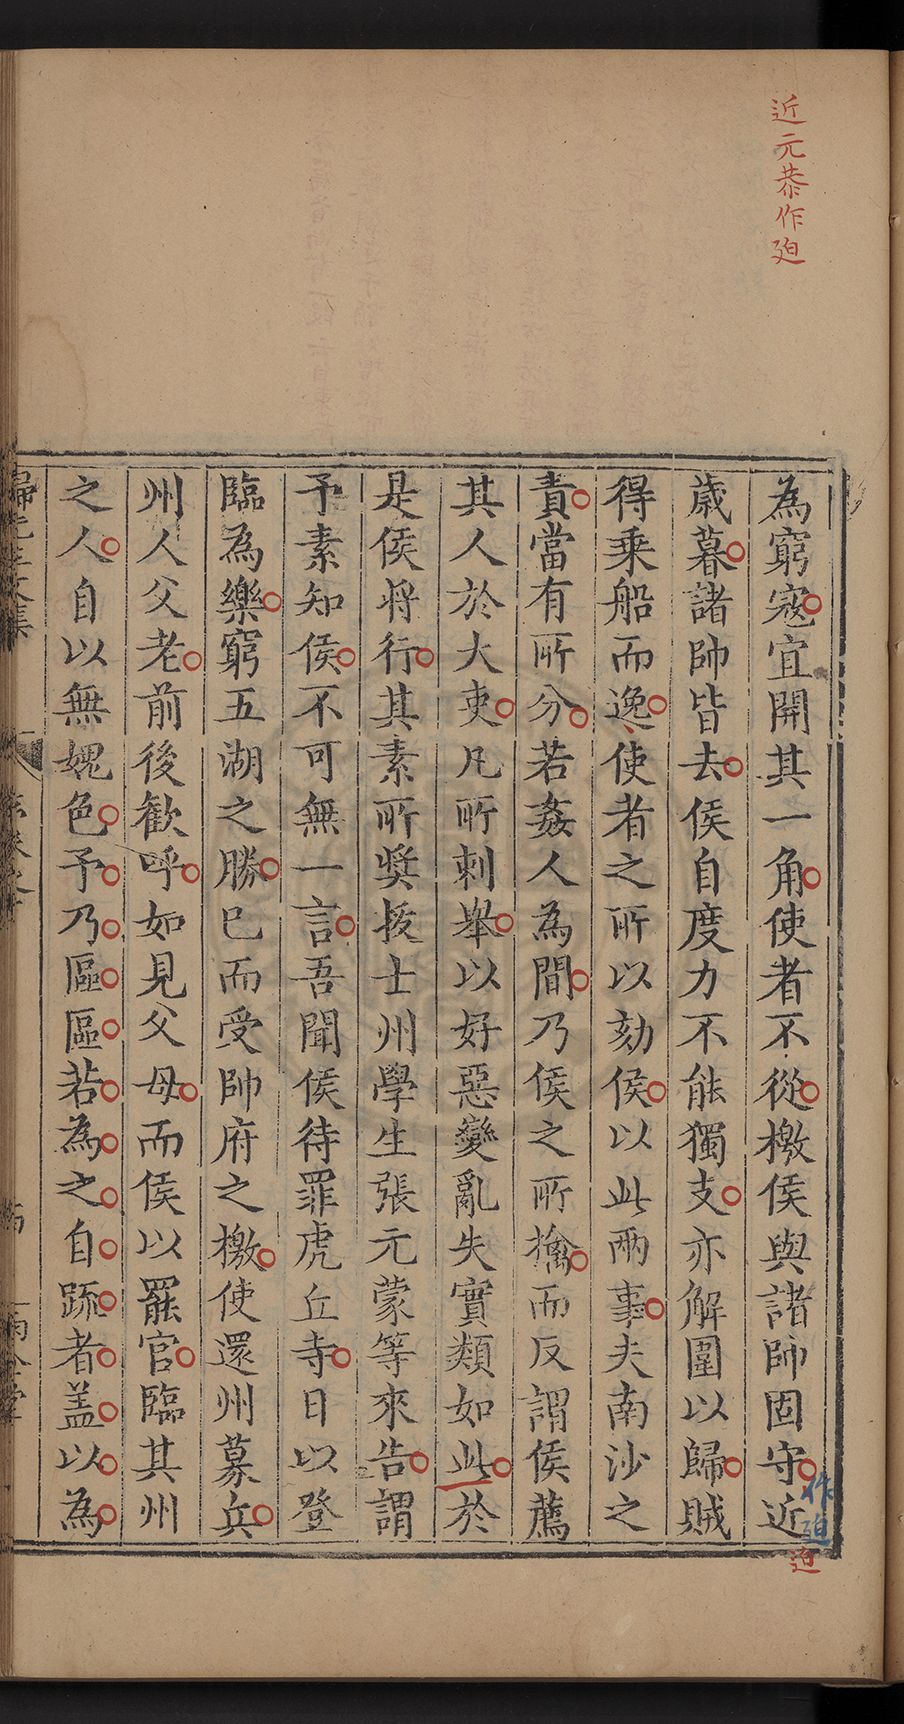 近元恭作廹
為窮寇宜開其一角使者不從檄侯與諸帥固守近
作廹
迫
歳暮諸帥皆去侯自度力不能獨支亦解圍以歸賊
得乗船而逸使者之所以劾侯以此兩事夫南沙之
責當有所分若姦人為間乃侯之所擒而反謂侯薦
其人於大吏凡所刺舉以好惡變亂失實類如此於
是侯将行其素所奬拔士州學生張元蒙等來告謂
予素知侯不可無一言吾聞侯待罪虎丘寺日以登
臨為樂窮五湖之勝已而受帥府之檄使還州募兵
州人父老前後歡呼如見父母而侯以罷官臨其州
之人自以無媿色予乃區區若為之自䟽者盖以為